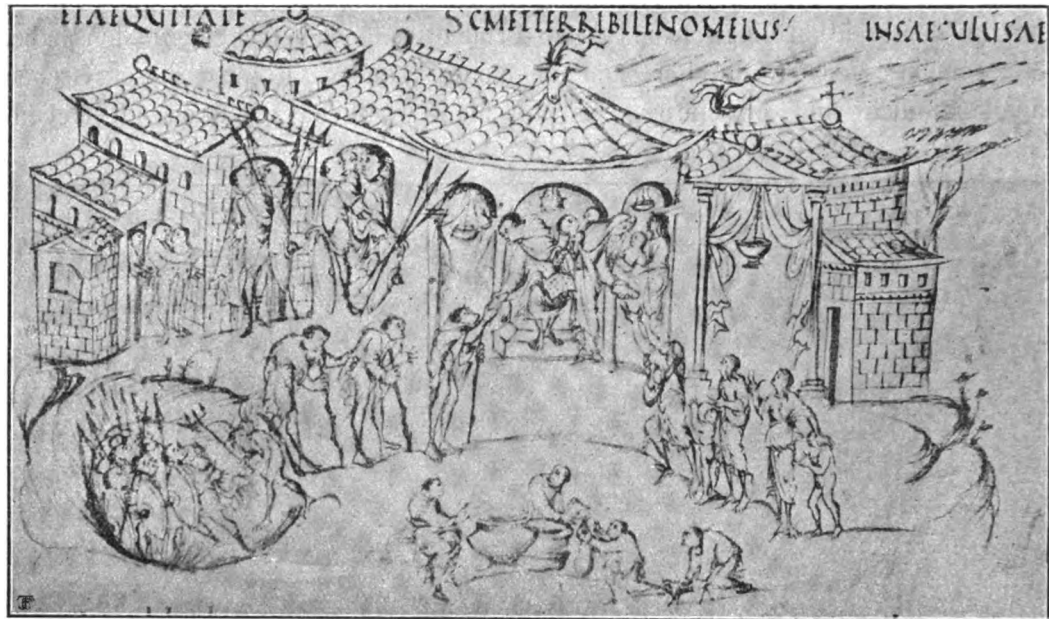 ETAEQUITATE SCMETTERRIBILENOMEIUS· INSAECULUSAE